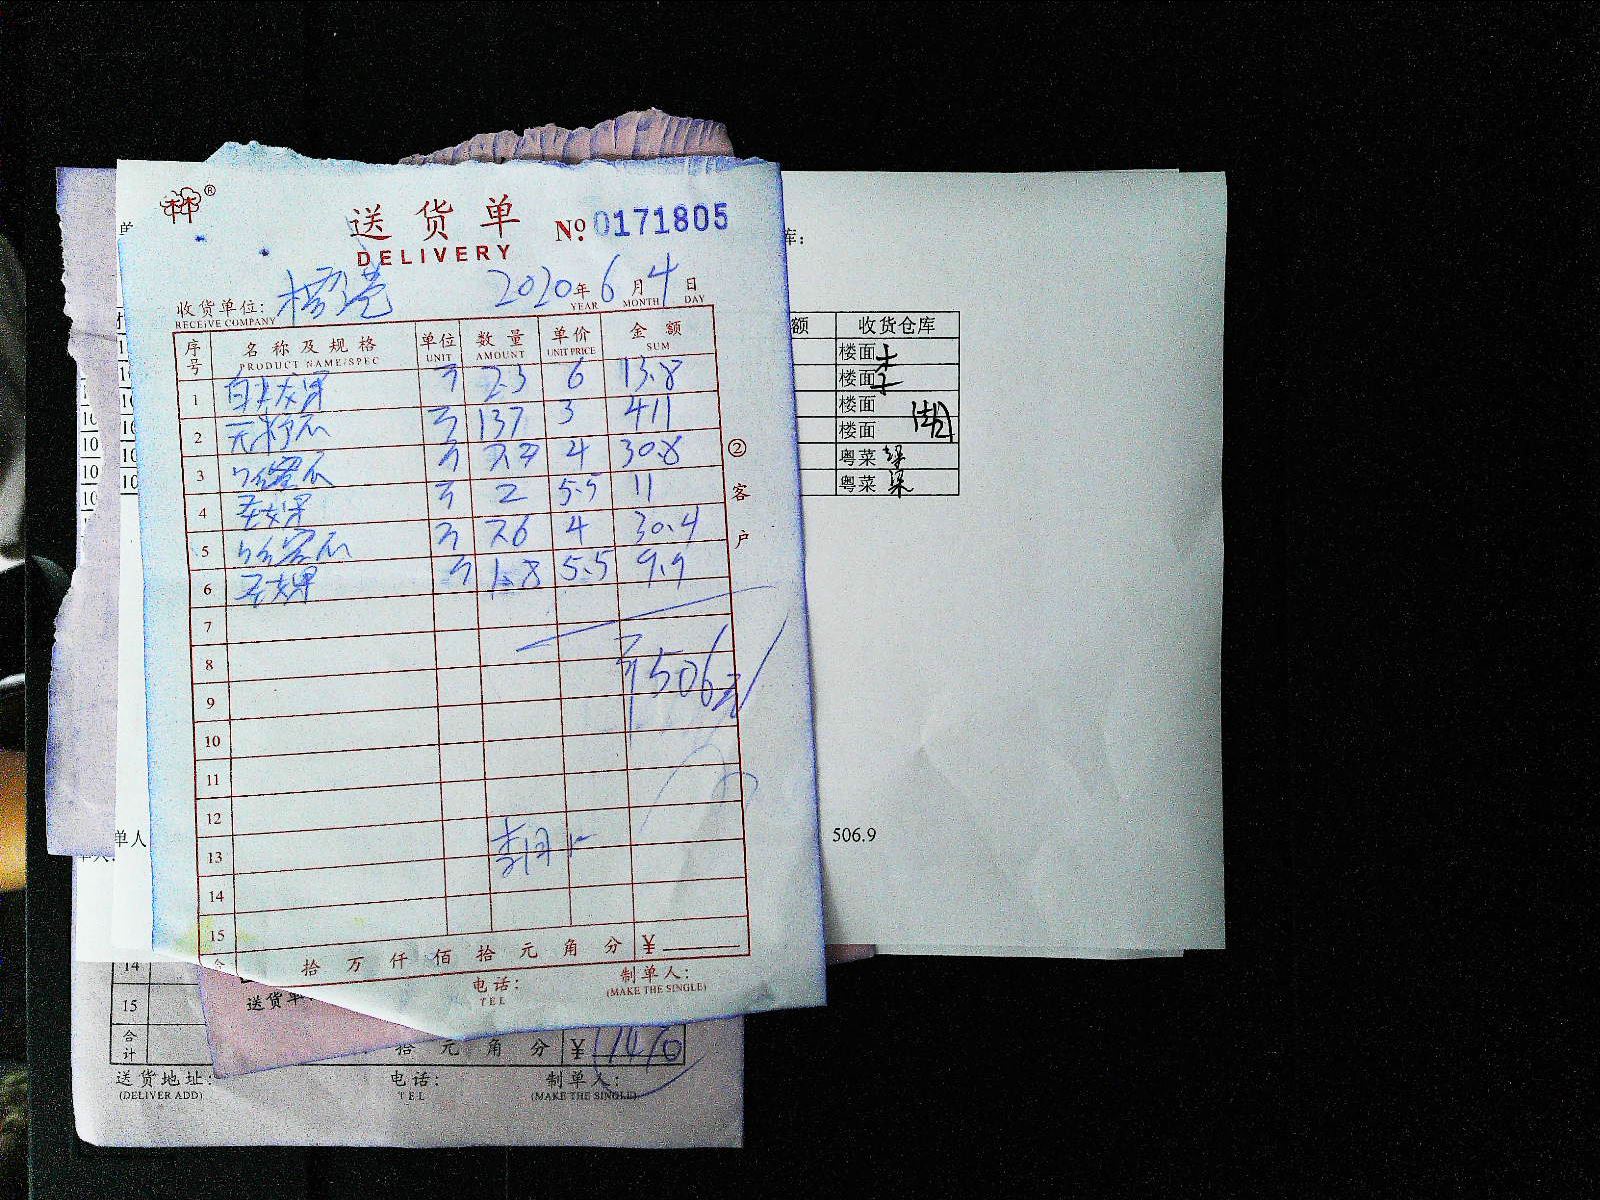 送货单
№ 0171805
DELIVERY
收货单位:
RECEIVE COMPANY
2020年6月4日
YEAR MONTH DAY
序号 名称及规格 单位 数量 单价 金额
PRODUCT NAME/SPEC UNIT AMOUNT UNIT PRICE SUM
1 白火龙果 斤 2.3 6 13.8
2 无籽瓜 斤 137 3 411
3 哈密瓜 斤 7.7 4 30.8
4 圣女果 斤 2 5.5 11
5 哈密瓜 斤 7.6 4 30.4
6 圣女果 斤 1.8 5.5 9.9
7
8
506元
9
10
11
12
13
14
15
拾万仟佰拾元角分 ¥
电话:
TEL
制单人:
(MAKE THE SINGLE)
②客户
库:
额 收货仓库
楼面
楼面
楼面
楼面
粤菜
粤菜 梁
506.9
单人
送货单
14
15
合计
拾元角分 ¥
送货地址:
(DELIVER ADD)
电话:
TEL
制单人:
(MAKE THE SINGLE)